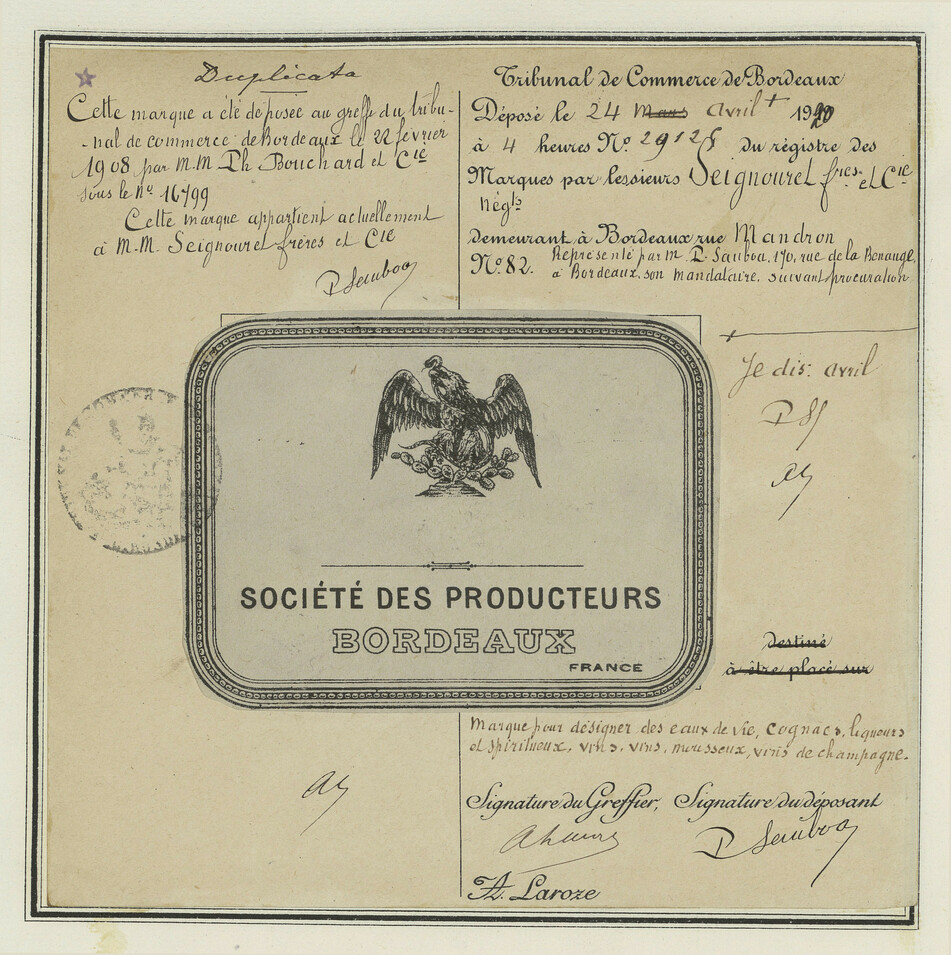 Duplicata
Cette marque a été déposée au greffe du tribu-
-nal de commerce de Bordeaux le 22 février
1908 par M.M Ph Bouchard et Cie
sous le No 16799
Cette marque appartient actuellement
à M.M. Seignouret frères et Cie
P Sauboa
Tribunal de Commerce de Bordeaux
Déposé le 24 Mars avril + 1920
à 4 heures No. 29125 du régistre des
Marques par lessieurs Seignouret fres. et Cie
Négts
demeurant à Bordeaux rue Mandron
No. 82. Représenté par M. P. Sauboa, 170, rue de la Benauge
à Bordeaux, son mandataire, suivant procuration
+
Je dis: avril
PS
SOCIÉTÉ DES PRODUCTEURS
BORDEAUX
FRANCE
destiné
à être placé sur
Marque pour désigner des eaux de vie, cognacs, liqueurs
et spiritueux, vins, vins, mousseux, vins de champagne.
Signature du Greffier, Signature du déposant
P Sauboa
A. Laroze